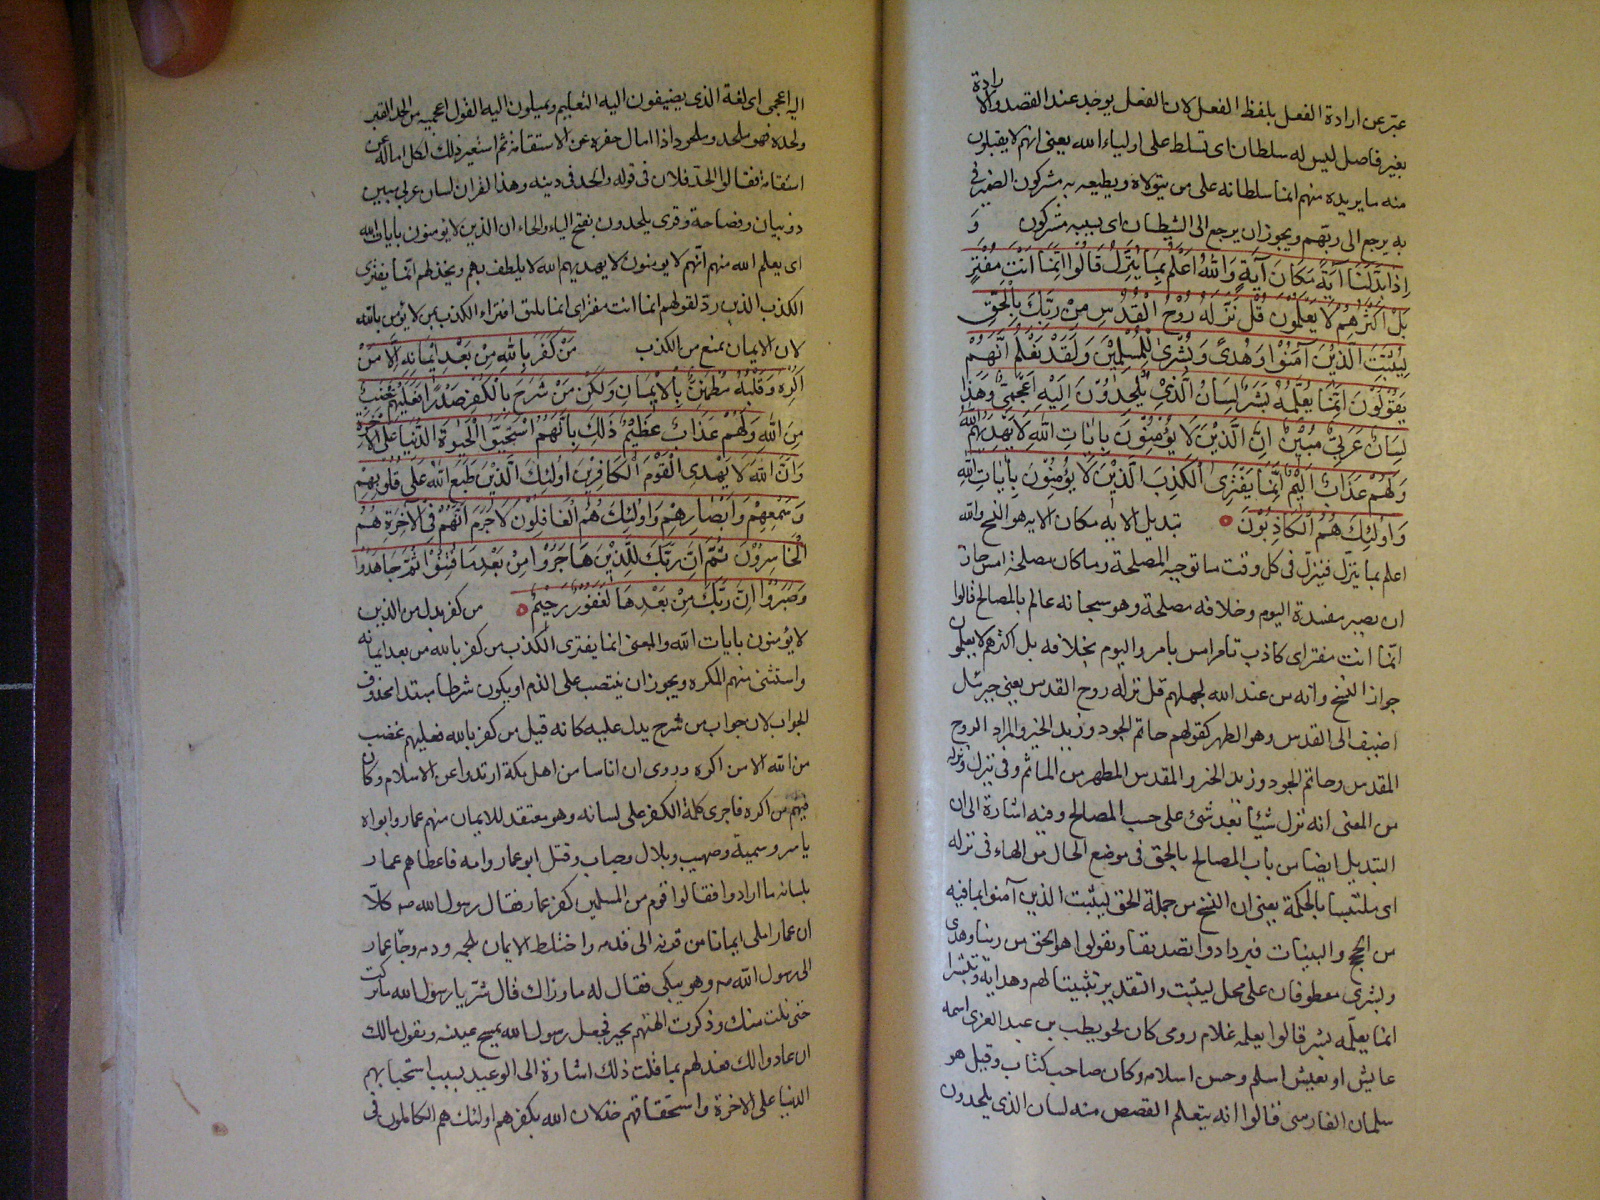 عبّر عن ارادة الفعل بلفظ الفعل لان الفعل يوجد عند القصد والارادة
بغير فاصل ليس له سلطان اى تسلط على اولياء الله يعنى انهم لا يقبلون
منه ما يريده منهم انما سلطانه على من يتولاه ويطيعه به مشركون الضمير فى
به يرجع الى ربهم ويجوز ان يرجع الى الشيطان اى بسببه مشركون وَ
اِذا بَدَّلْنَا آيَةً مَكَانَ آيَةٍ وَاللهُ اَعْلَمُ بِمَا يُنَزِّلُ قَالُوا اِنَّمَا اَنْتَ مُفْتَرٍ
بَلْ اَكْثَرُهُمْ لَا يَعْلَمُونَ قُلْ نَزَّلَهُ رُوحُ الْقُدُسِ مِنْ رَبِّكَ بِالْحَقِّ
لِيُثَبِّتَ الَّذينَ آمَنُوا وَهُدىً وَبُشْرىٰ لِلْمُسْلِمينَ وَلَقَدْ نَعْلَمُ اَنَّهُمْ
يَقُولُونَ اِنَّمَا يُعَلِّمُهُ بَشَرٌ لِسَانُ الَّذى يُلْحِدُونَ اِلَيْهِ اَعْجَمِىٌّ وَهٰذَا
لِسَانٌ عَرَبِىٌّ مُبينٌ اِنَّ الَّذينَ لَا يُؤْمِنُونَ بِآيَاتِ اللهِ لَا يَهْديهِمُ اللهُ
وَلَهُمْ عَذَابٌ اَليمٌ اِنَّمَا يَفْتَرِى الْكَذِبَ الَّذينَ لَا يُؤْمِنُونَ بِآيَاتِ اللهِ
وَاُولٰئِكَ هُمُ الْكَاذِبُونَ تبديل الاية مكان الاية هو النسخ والله
اعلم بما ينزّل فينزل فى كل وقت ما توجبه المصلحة وما كان مصلحة امس جاز
ان يصير مفسدة اليوم وخلافه مصلحة وهو سبحانه عالم بالمصالح قالوا
انما انت مفتر اى كاذب تامر امس بامر واليوم بخلافه بل اكثرهم لا يعلمون
جواز النسخ وانه من عند الله لجهلهم قل نزله روح القدس يعنى جبرئيل
اضيف الى القدس وهو الطهر كقولهم حاتم الجود وزيد الخير والمراد الروح
المقدس وحاتم الجود وزيد الخير والمقدس المطهر من الماثم وفى ينزل ونزله
من المعنى انه نزل شيئا بعد شئ على حسب المصالح وفيه اشارة الى ان
التبديل ايضا من باب المصالح بالحق فى موضع الحال من الهاء فى نزله
اى ملتبسا بالحكمة يعنى ان النسخ من جملة الحق ليثبت الذين آمنوا بما فيه
من الحجج والبينات فيزدادوا تصديقا ويقولوا هو الحق من ربنا وهدى
وبشرى معطوفان على محل ليثبت والتقدير تثبيتا لهم وهداية وتبشيرا
انما يعلّمه بشر قالوا يعلمه غلام رومى كان لحويطب بن عبد العزى اسمه
عايش او يعيش اسلم وحسن اسلامه وكان صاحب كتاب وقيل هو
سلمان الفارسى قالوا انه يتعلم القصص منه لسان الذى يلحدون
اليه اعجمى اى لغة الذى يضيفون اليه التعليم ويميلون اليه القول اعجمية من الحد القبر
ولحده فهو ملحد وملحود اذا امال حفره عن الاستقامة ثم استعير ذلك لكل امالة عن
استقامة فقالوا الحد فلان فى قوله والحد فى دينه وهذا القران لسان عربى مبين
ذو بيان وفصاحة وقرى يلحدون بفتح الياء والحاء ان الذين لا يؤمنون بايات الله
اى يعلم الله منهم انهم لا يومنون لا يهديهم الله لا يلطف بهم ويخذلهم انما يفترى
الكذب الذين ردّ لقولهم انما انت مفتر اى انما يليق افتراء الكذب بمن لا يؤمن بالله
لان الايمان يمنع من الكذب مَنْ كَفَرَ بِاللهِ مِنْ بَعْدِ ايمَانِهِ اِلَّا مَنْ
اُكْرِهَ وَقَلْبُهُ مُطْمَئِنٌّ بِالْايمَانِ وَلٰكِنْ مَنْ شَرَحَ بِالْكُفْرِ صَدْرًا فَعَلَيْهِمْ غَضَبٌ
مِنَ اللهِ وَلَهُمْ عَذَابٌ عَظيمٌ ذٰلِكَ بِاَنَّهُمُ اسْتَحَبُّوا الْحَيٰوةَ الدُّنْيَا عَلَى الْآخِرَةِ
وَاَنَّ اللهَ لَا يَهْدِى الْقَوْمَ الْكَافِرينَ اُولٰئِكَ الَّذينَ طَبَعَ اللهُ عَلٰى قُلُوبِهِمْ
وَسَمْعِهِمْ وَاَبْصَارِهِمْ وَاُولٰئِكَ هُمُ الْغَافِلُونَ لَا جَرَمَ اَنَّهُمْ فِى الْآخِرَةِ هُمُ
الْخَاسِرُونَ ثُمَّ اِنَّ رَبَّكَ لِلَّذينَ هَاجَرُوا مِنْ بَعْدِ مَا فُتِنُوا ثُمَّ جَاهَدُوا
وَصَبَرُوا اِنَّ رَبَّكَ مِنْ بَعْدِهَا لَغَفُورٌ رَحيمٌ من كفر بدل من الذين
لا يؤمنون بايات الله والمعنى انما يفترى الكذب من كفر بالله من بعد ايمانه
واستثنى منهم المكره ويجوز ان ينتصب على الذم او يكون شرطا مبتدا محذوف
الجواب لان جواب من شرح يدل عليه كانه قيل من كفر بالله فعليهم غضب
من الله الا من اكره وروى ان اناسا من اهل مكة ارتدوا عن الاسلام وكان
فيهم من اكره فاجرى كلمة الكفر على لسانه وهو معتقد للايمان منهم عمار وابواه
ياسر وسمية وصهيب وبلال وخباب وقتل ابو عمار وامه فاعطاهم عمار
بلسانه ما ارادوا فقالوا قوم من المسلمين كفر عمار فقال رسول الله صه كلّا
ان عمارا ملى ايمانا من قرنه الى قدمه واختلط الايمان بلحمه ودمه وجا عمار
الى رسول الله صه وهو يبكى فقال له ما وراك قال شر يا رسول الله ما تركت
حتى نلت منك وذكرت الهتهم بخير فجعل رسول الله يمسح عينيه ويقول مالك
ان عادوا لك فعد لهم بما قلت ذلك اشارة الى الوعيد بسبب استحبابهم
الدنيا على الاخرة واستحقاقهم خذلان الله بكفرهم اولئك هم الكاملون فى